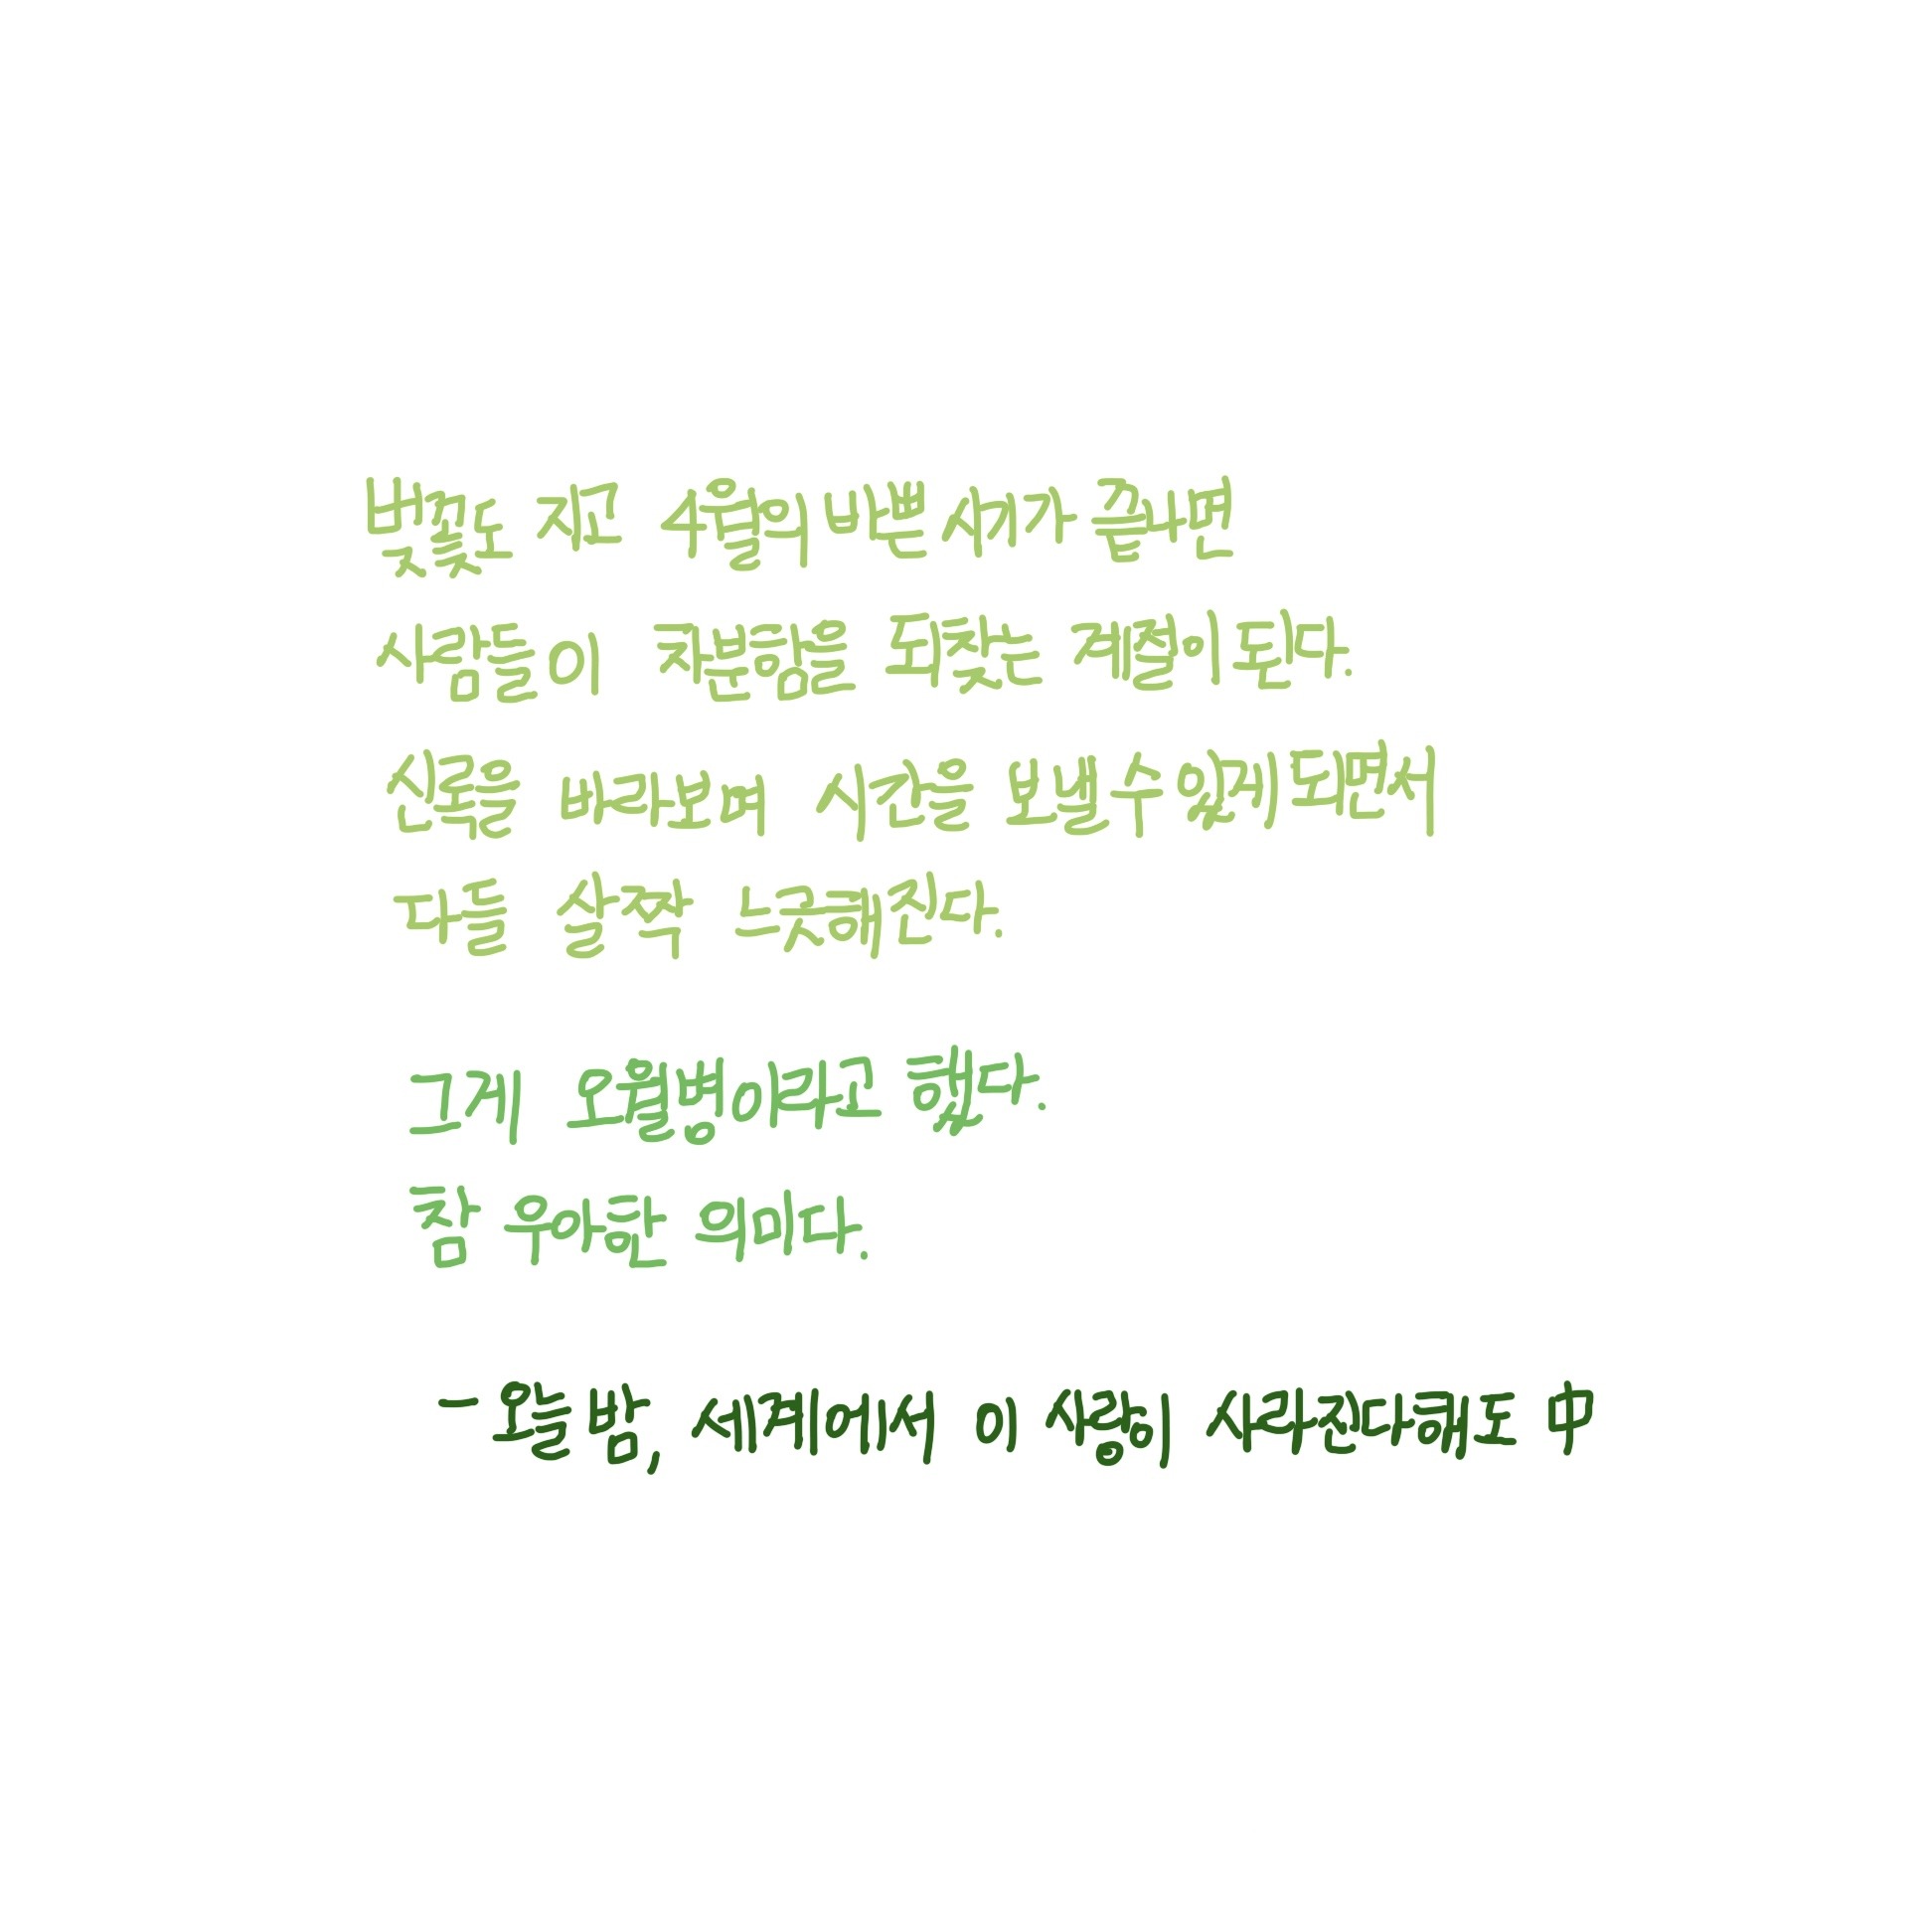 벚꽃도 지고 4월의 바쁜 시기가 끝나면
사람들이 차분함을 되찾는 계절이 된다.
신록을 바라보며 시간을 보낼 수 있게 되면서
다들 살짝 느긋해진다.
그게 오월병이라고 했다.
참 우아한 의미다.
- 오늘 밤, 세계에서 이 사랑이 사라진다 해도 中